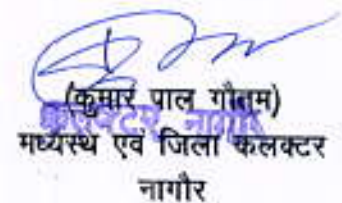 (कुमार पाल गौतम)
कलक्टर, नागौर
मध्यस्थ एवं जिला कलक्टर
नागौर